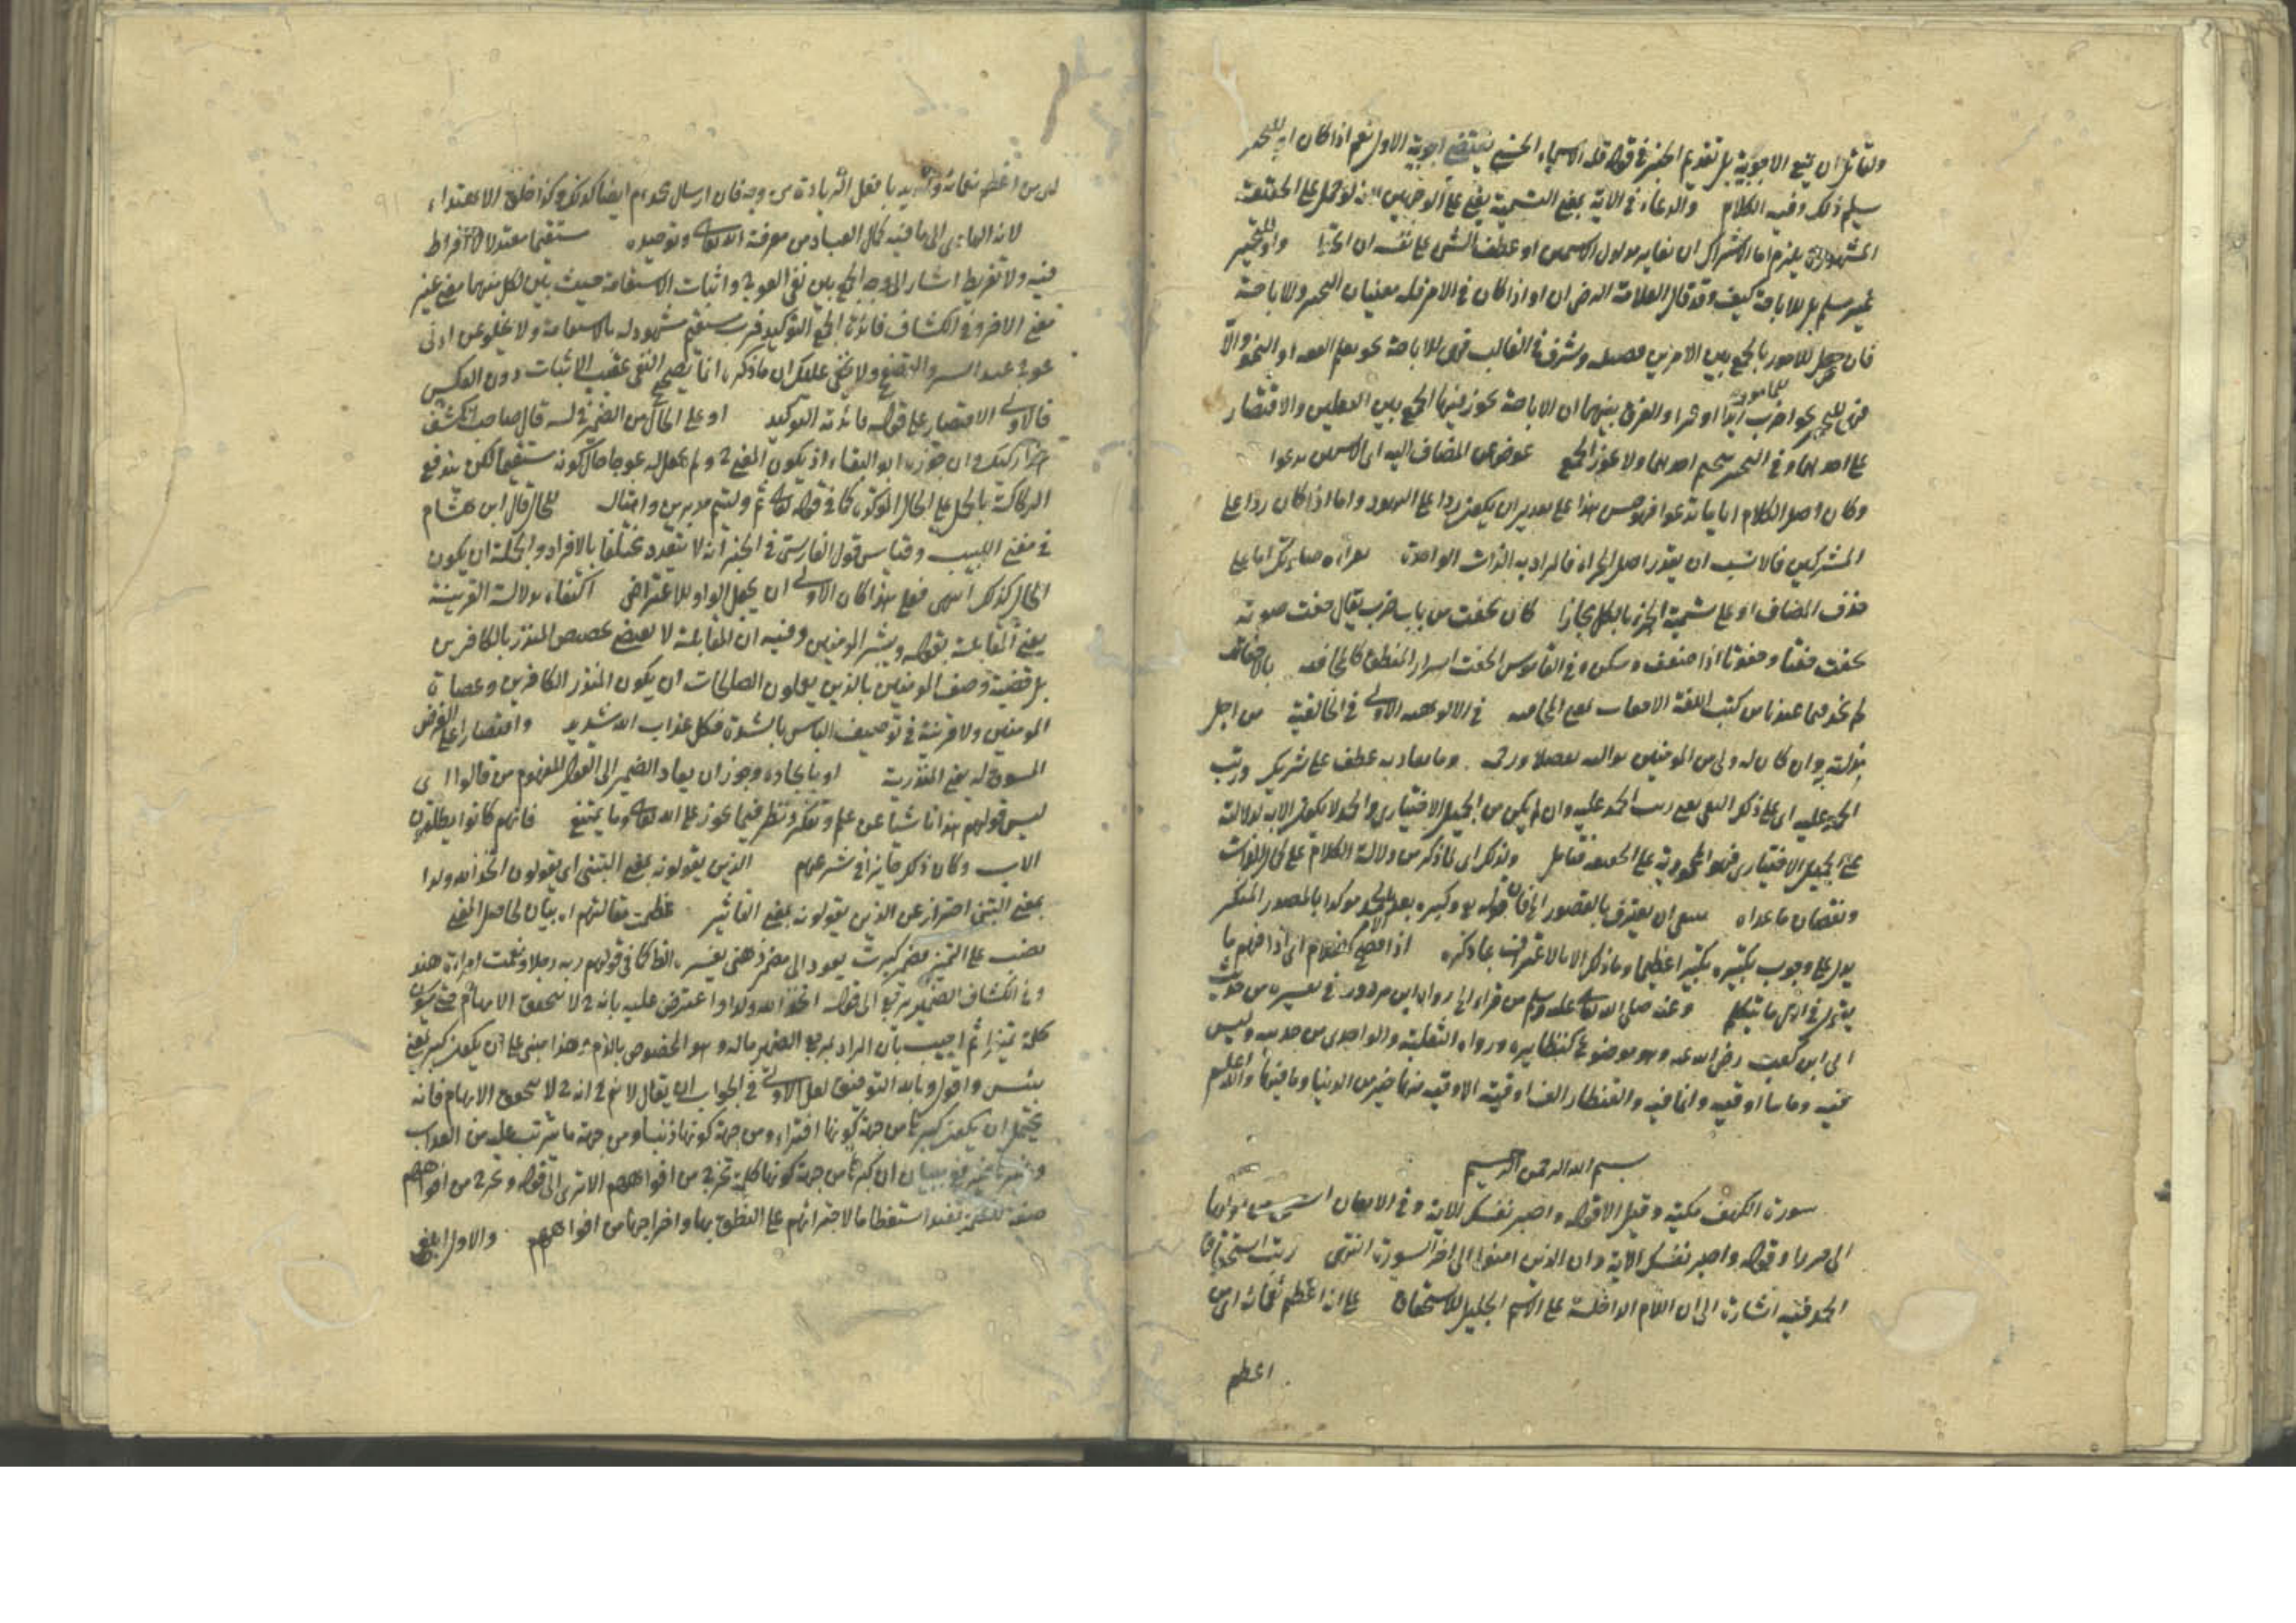 ولقائل ان يمنع الاجوبة بل تقديم الخبر في قوله فله الاسماء الحسنى يقتضى اجوبة الاول نعم اذا كان او للتخيير
سلم ذلك وفيه الكلام والدعاء في الآية بمعنى التسمية يعنى على الوجهين لانه لو حمل على الحقيقة
المشهورة يلزم اما الاشراك ان تغاير مدلول الاسمين او عطف الشئ على نفسه ان اتحدا واو للتخيير
غير مسلم بل للاباحة كيف وقد قال العلامة الرضى ان او اذا كان في الامر فله معنيان التخيير والاباحة
فان حصل للمامور بالجمع بين الامرين فضيلة وشرف في الغالب فهى للاباحة نحو تعلم الفقه او النحو والا
فهى للتخيير نحو اضرب زيدا او عمرا والفرق بينهما ان الاباحة يجوز فيها الجمع بين الفعلين والاقتصار
على احدهما وفي التخيير يتحتم احدهما ولا يجوز الجمع عوض عن المضاف اليه اى الاسمين تدعوا
وكان اصل الكلام ايا ما تدعوا فهو حسن هذا على تقدير ان يكون ردا على اليهود واما اذا كان ردا على
المشركين فالانسب ان يقدر اصل الجزاء فالمراد به الذات الواحدة بقراءة صلاتك اما على
حذف المضاف او على تسمية الجزء بالكل مجازا كان يخفت من باب ضرب يقال خفت صوته
يخفت خفتا وخفوتا اذا ضعف وسكن وفي القاموس الخفت اسرار المنطق كالمخافتة بالاخفات
لم نجد فيما عندنا من كتب اللغة الاخفات بمعنى المخافتة في الالوهية الاولى في الخالقية من اجل
مذلة به وان كان له ولى من المؤمنين يواليه تفضلا ورحمة وما يعاديه عطف على شريك ورتب
الحمد عليه اى على ذكر النفى يعنى رتب الحمد عليه وان لم يكن من الجميل الاختيارى والحمد لا يكون الا به لدلالته
على الجميل الاختيارى فهو المحمود به على الحقيقة فتامل ولذلك اى لما ذكر من دلالة الكلام على كمال الذات
ونقصان ما عداه ينبغى ان يعترف بالقصور اى فان قوله وكبره بعد الحمد مؤكدا بالمصدر المنكر
يدل على وجوب تكبيره تكبيرا عظيما وما ذلك الا بالاعتراف بما ذكره اذا افصح الغلام اى اذا فهم ما
يتداول في اول ما يتكلم وعنه صلى الله تعالى عليه وسلم من قراء الخ رواه ابن مردويه في تفسيره من حديث
ابى ابن كعب رضى الله عنه وهو موضوع كنظائره ورواه الثعلبى والواحدى من حديثه وليس
فيه وما مائتا اوقية وانما فيه والقنطار الف اوقية الاوقية منها خير من الدنيا وما فيها والله اعلم
بسم الله الرحمن الرحيم
سورة الكهف مكية وقيل الا قوله واصبر نفسك الآية وفي الاتقان استثنى من اولها
الى جرزا وقوله واصبر نفسك الآية وان الذين امنوا الى اخر السورة انتهى رتب استحقاق
الحمد فيه اشارة الى ان اللام الداخلة على الاسم الجليل للاستحقاق على انه اعظم نعمائه اى من
اعظم
اى من اعظم نعمائه
لانه الهادى الى ما فيه كمال العباد من معرفة الله تعالى وتوحيده مستقيما معتدلا لا افراط
فيه ولا تفريط اشار الى وجه الجمع بين نفى العوج واثبات الاستقامة حيث بين لكل منهما معنى غير
معنى الاخر وفي الكشاف فائدة الجمع التوكيد فرب مستقيم مشهود له بالاستقامة ولا يخلو عن ادنى
عوج عند السبر والتصفح ولا يخفى عليك ان ما ذكره انما يصحح النفى عقيب الاثبات دون العكس
فالاولى الاقتصار على قوله فائدته التوكيد او على الحال من الضمير في له قال صاحب الكشف
هذا ركيك وان جوزه ابو البقاء اذ يكون المعنى ح ولم يجعل له عوجا حال كونه مستقيما لكن يندفع
الركاكة بالحمل على الحال المؤكدة كما في قوله تعالى ثم وليتم مدبرين وامثاله للحال قال ابن هشام
في مغنى اللبيب وقياس قول الفارسى في الخبر انه لا يتعدد مختلفا بالافراد والجملة ان يكون
الحال كذلك انتهى فعلى هذا كان الاولى ان يجعل الواو للاعتراض اكتفاء بدلالة القرينة
يعنى المقابلة بقوله ويبشر المؤمنين وفيه ان المقابلة لا تقتضى تخصيص المنذر بالكافرين
بل قضية وصف المؤمنين بالذين يعملون الصالحات ان يكون المنذر الكافرين وعصاة
المؤمنين ولا قرينة في توصيف الباس بالشدة فكل عذاب الله شديد واقتصارا على الغرض
المسوق له يعنى المنذر به او باتخاذه وجوز ان يعاد الضمير الى القول المفهوم من قالوا اى
ليس قولهم هذا ناشيا عن علم وتفكر ونظر فيما يجوز على الله تعالى وما يمتنع فانهم كانوا يطلقون
الاب وكان ذلك جايزا في شرعهم الذين يقولونه بمعنى التبنى اى يقولون اتخذ الله ولدا
بمعنى التبنى احتراز عن الذين يقولونه بمعنى التاثير عظمت مقالتهم اه بيان لحاصل المعنى
نصب على التمييز فضمير كبرت يعود الى مضمر ذهنى يفسره الظاهر كما في قولهم ربه رجلا ونعمت امراءة هند
وفي الكشاف الضمير يرجع الى قوله اتخذ الله ولدا واعترض عليه بانه ح لا يتحقق الابهام حتى يكون
كلمة تميزا ثم اجيب بان المراد بمرجع الضمير ماله وهو المخصوص بالذم وهذا مبنى على ان يكون كبر بمعنى
بئس واقول وبالله التوفيق لعل الاولى في الجواب ان يقال لا نسلم انه ح لا يتحقق الابهام فانه
يحتمل ان يكون كبرها من جهة كونها افتراء ومن جهة كونها ذنبا ومن جهة ما يترتب عليه من العذاب
بيان ان كبرها من جهة كونها كلمة تخرج من افواههم الا ترى الى قوله وتخرج من افواههم
صفة للكلمة تفيد استعظاما لاجترائهم على النطق بها واخراجها من افواههم والاول ابلغ